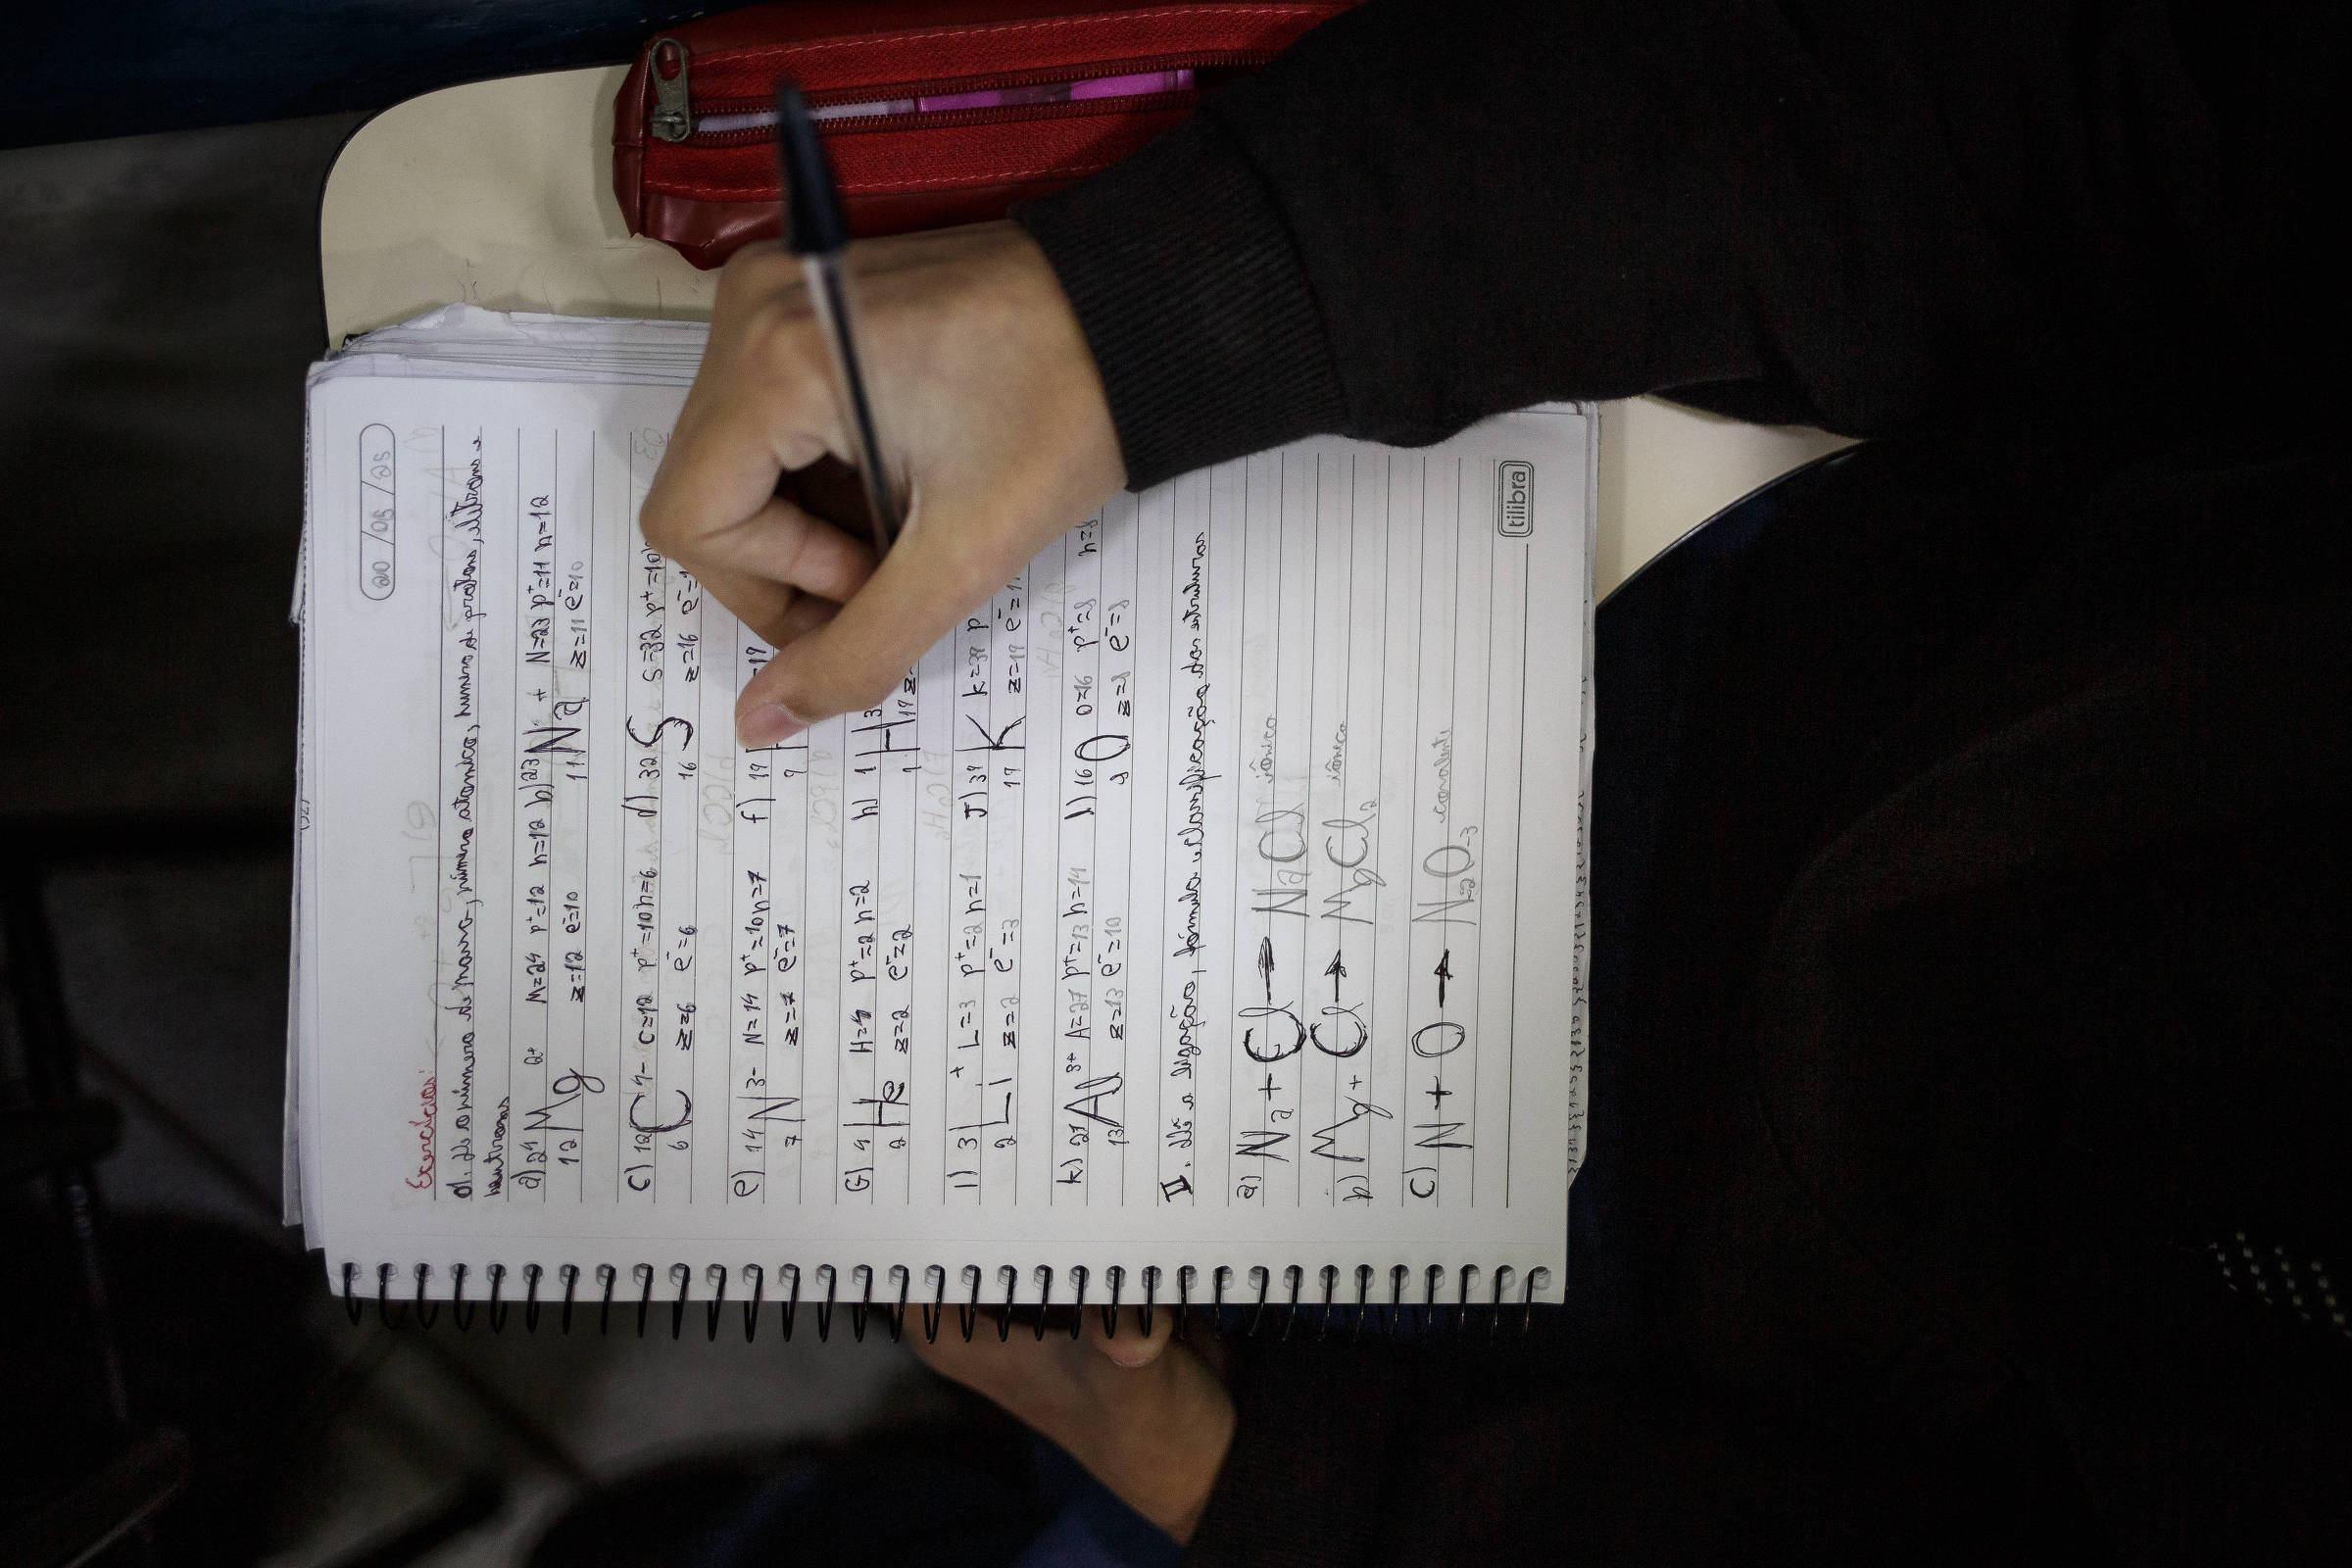 20/08/25
Exercícios:
01. Dê o número de massa, número atomico, número de protons, elétrons e
neutrons
a) 24 Mg 2+ M=24 p+=12 n=12 b) 23 Na + N=23 p+=11 n=12
12 z=12 e-=10 11 z=11 e-=10
c) 12 C 4- C=12 p+=10 n=6 d) 32 S S=32 p+=10
6 z=6 e-=6 16 z=16 e-=1
e) 14 N 3- N=14 p+=10 n=7 f) 19
7 z=7 e-=7 9
G) 4 He H=4 p+=2 n=2 h) 1 H
2 z=2 e-=2 1
I) 3 Li + L=3 p+=2 n=1 J) 39 K K=39 p
2 z=2 e-=3 19 z=19 e-=1
K) 27 Al 3+ A=27 p+=13 n=14 l) 16 O O=16 p+=8 n=8
13 z=13 e-=10 8 z=8 e-=8
II. Dê a ligação, fórmula e classificação das estruturas
a) Na + Cl → NaCl iônico
b) Mg + Cl → MgCl2 iônico
c) N + O → N2O3 covalente
tilibra